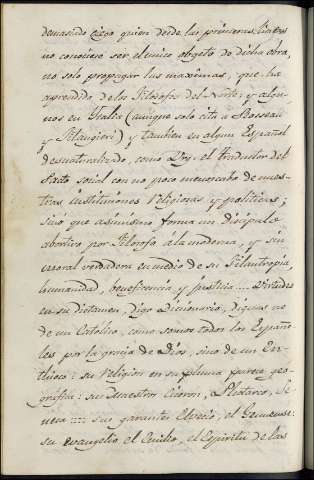 demasiado ciego quien desde las primeras lineas
no conociese ser el unico objeto de dicha obra,
no solo propagar las maximas, que ha
aprendido de los Filosofos del Norte, y algu-
nos en Ytalia (aunque solo cita a Rosseau
y Filangieri) y tambien en algun Español
desnaturalizado, como Dn. el Traductor del
Pacto social con no poco menoscabo de nues-
tras instituciones religiosas y politicas;
sinó que asimismo forma un discipulo
abortivo por Filosofo á la moderna, y sin
moral verdadera en medio de su Filantropia,
humanidad, beneficencia y justicia.... Virtudes
en su dictamen, digo Diccionario, dignas no
de un Catolico, como somos todos los Españo-
les por la gracia de Dios, sino de un
su religion en su pluma parece geo-
grafia: sus Maestros Ciceron, Plutarco, Se-
neca :::: sus garantes Elvecio, el Ginevrino:
su evangelio el Emilio, el Espiritu de las